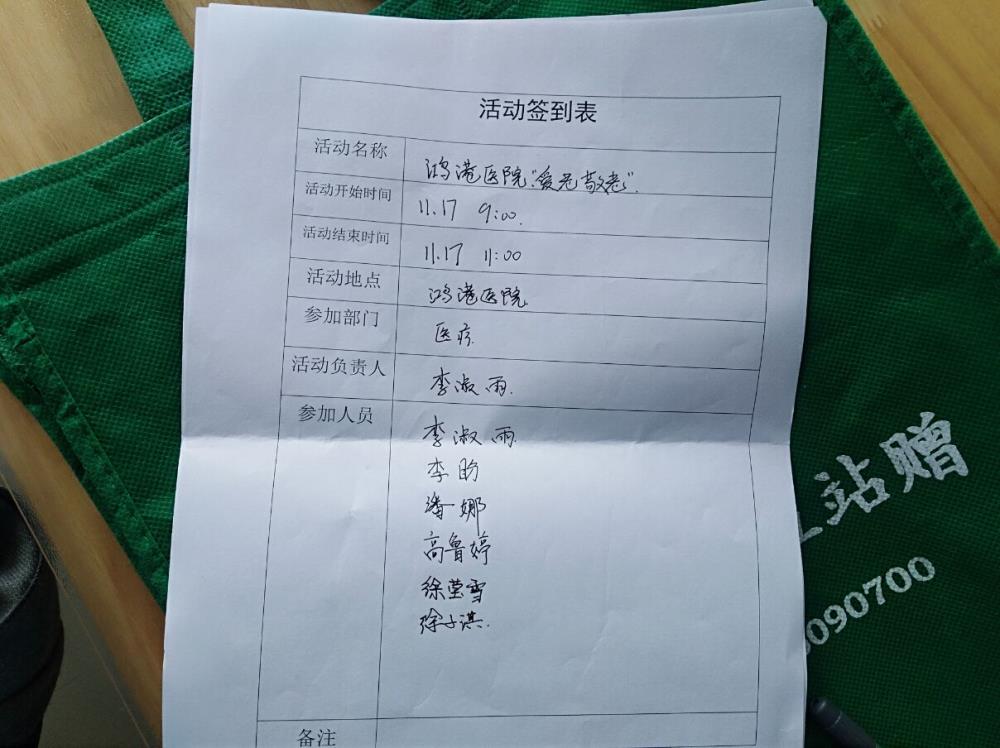 活动签到表
活动名称 鸿港医院"爱老敬老".
活动开始时间 11.17 9:00.
活动结束时间 11.17 11:00
活动地点 鸿港医院
参加部门 医疗
活动负责人 李淑雨.
参加人员 李淑雨
李盼
潘娜
高鲁婷
徐莹雪
徐子淇.
备注
站赠
090700